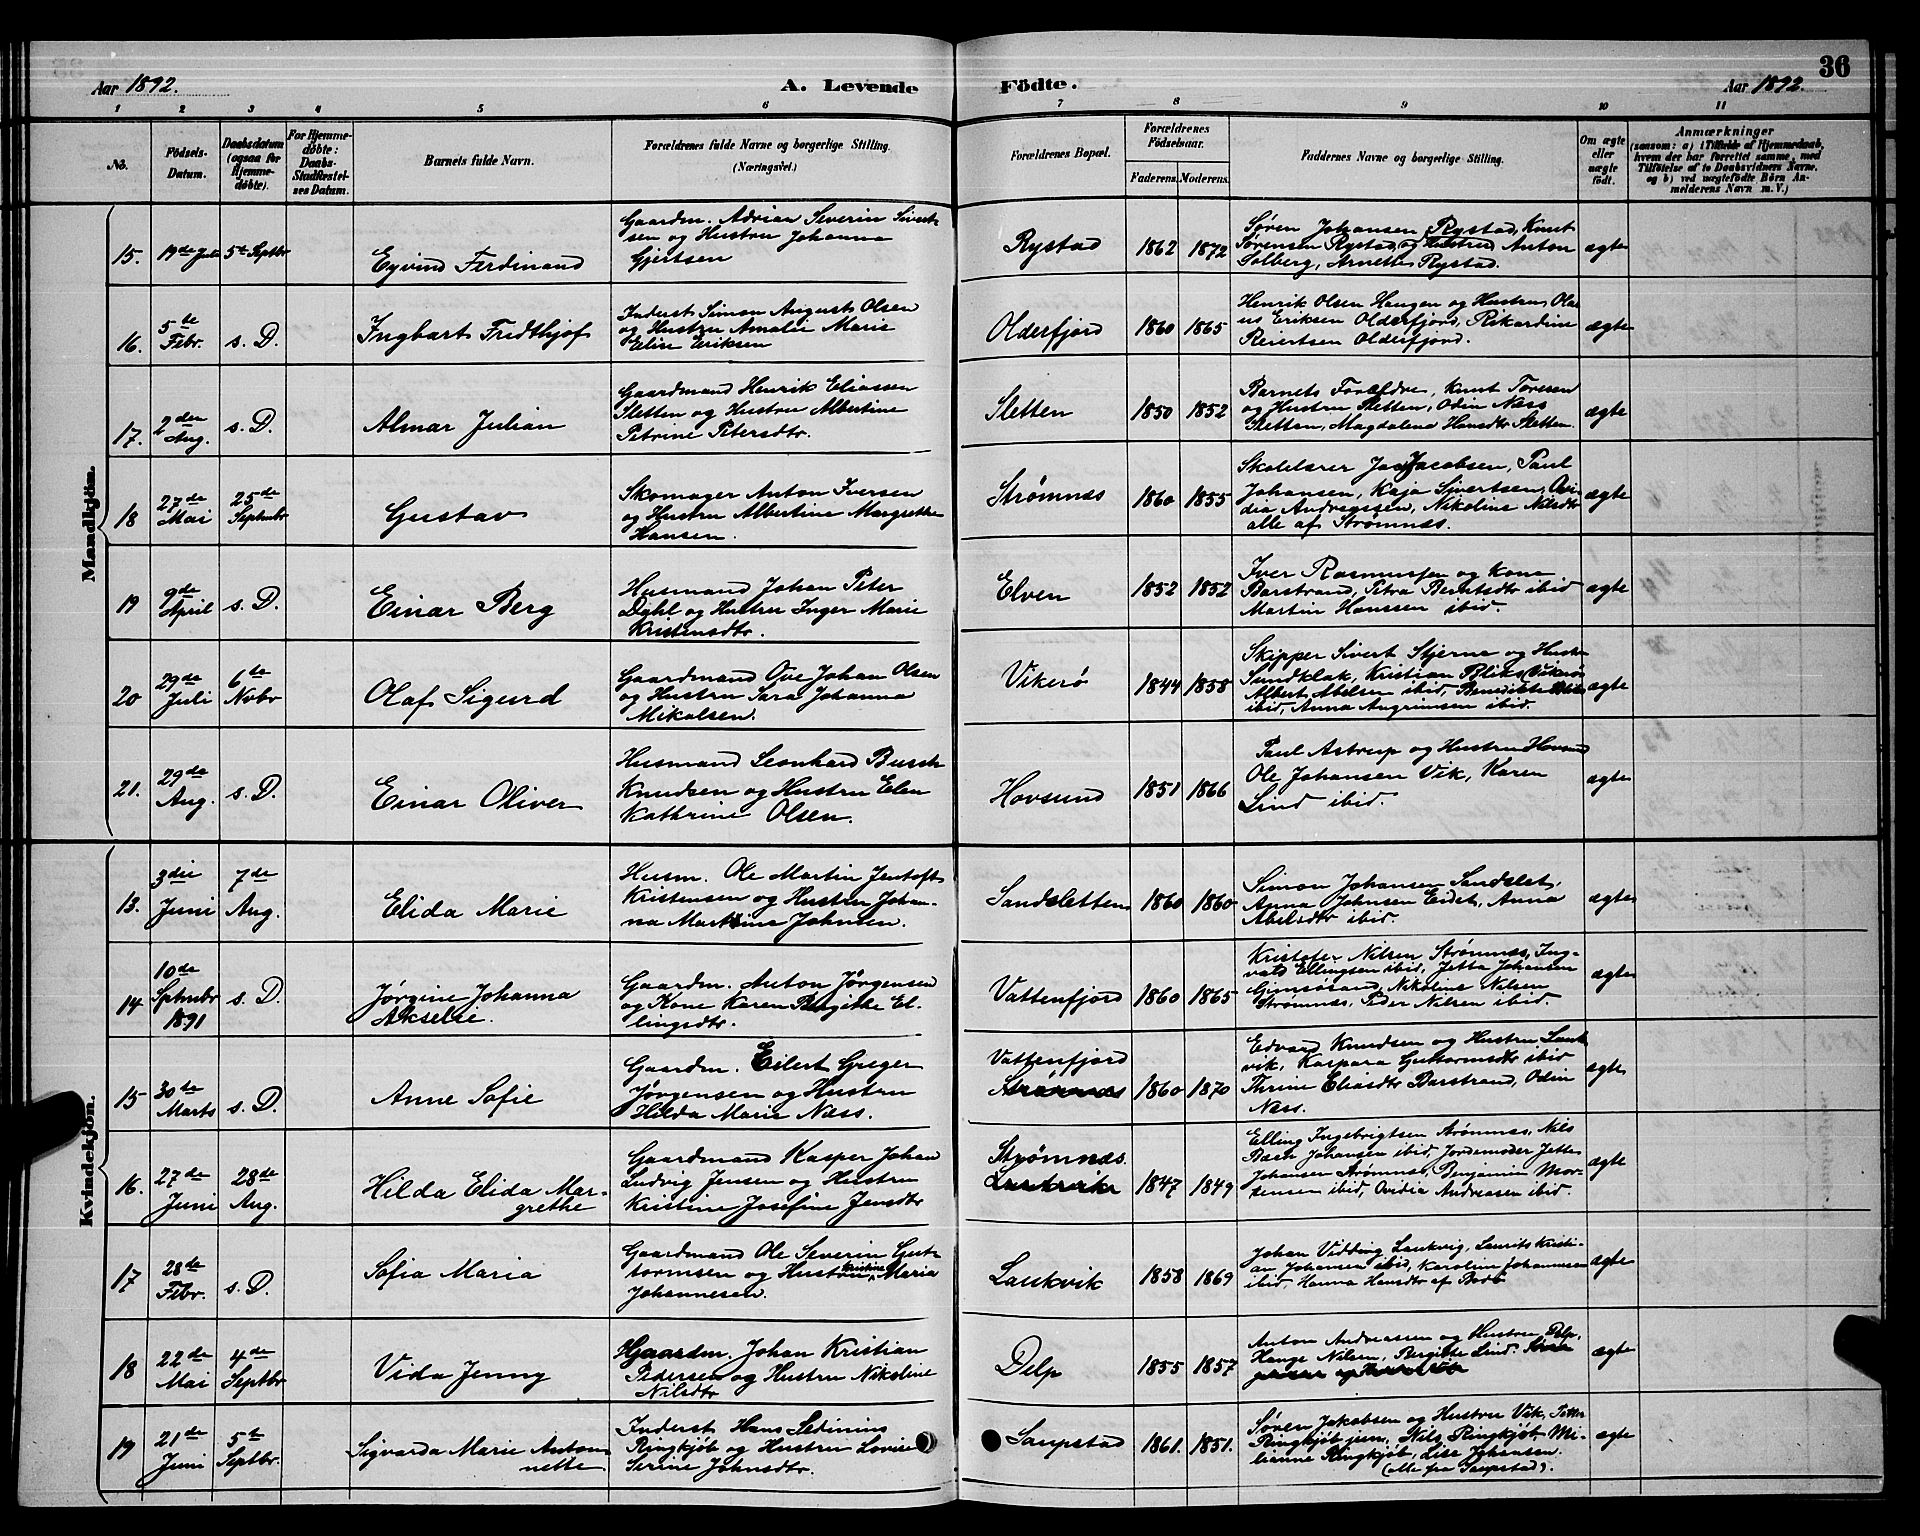 Aar 1892.
A. Levende Födte.
Aar 1892.
36
1 2 3 4 5 6 7 8 9 10 11
No.
Födsels-Datum.
Daabsdatum (ogsaa for Hjemme-døbte).
For Hjemme-døbte: Daabs-Stadfæstel-ses Datum.
Barnets fulde Navn.
Forældrenes fulde Navne og borgerlige Stilling.
(Næringsvei.)
Forældrenes Bopæl.
Forældrenes Födselsaar.
Faderens. Moderens.
Faddernes Navne og borgerlige Stilling.
Om ægte eller uægte födt.
Anmærkninger
(saasom: a) i Tilfælde af Hjemmedaab, hvem der har forrettet samme, med Tilföielse af to Daabsvidners Navne, og b) ved uægtefödte Börn An-melderens Navn m. V.)
Mandkjön.
15. 19de Juli 5te Septbr
Eyvind Ferdinand
Gaardm. Adrian Severin Sivert-
sen og Hustru Johanna
Gjertsen
Rystad 1862 1872
Søren Johansen Rystad, Knut
Sørensen Rystad, og Hustru Anton
Solberg, Arnette Rystad.
ægte
16. 5te Febr. s. D.
Ingbart Fridthjof
Inderst Simon August Olsen
og Hustru Amalie Marie
Elise Eriksen
Olderfjord 1860 1865
Henrik Olsen Haugen og Hustru, Ola-
us Eriksen Olderfjord, Rikardine
Reiertsen Olderfjord.
ægte
17. 2den Aug. s. D.
Almar Julian
Gaardmand Henrik Eliassen
Sletten og Hustru Albertine
Petrine Petersdtr.
Sletten 1850 1852
Barnets Forældre, Knut Toresen
og Hustru Sletten, Odin Næss
Sletten, Magdalena Hansdtr Sletten.
ægte
18 27de Mai 25de Septmbr
Gustav
Skomager Anton Iversen
og Hustru Albertine Margrethe
Hansen.
Strømnæs 1860 1855
Skolelærer Jacobsen, Paul
Johansen, Kaja Sivertsen, Ovi-
dia Andreassen, Nikoline Nilsdtr
alle af Strømnæs.
ægte
19 9de April s. D.
Einar Berg
Husmand Johan Peter
Dahl og Hustru Inger Marie
Kristensdtr.
Elven 1852 1852
Iver Rasmussen og Kone
Barstrand, Petra Berntsdtr ibid
Martin Hanssen ibid.
ægte
20 29de Juli 6te Novbr
Olaf Sigurd
Gaardmand Ove Johan Olsen
og Hustru Sara Johanna
Mikalsen.
Vikerø 1844 1858
Skipper Sivert Stjerne og Hustr.
Sundklak, Kristian Bliks Vikerø
Albert Abelsen ibid, Benedikte Bliks
ibid, Anna Angrimsen ibid.
ægte
21. 29de Aug. s. D.
Einar Oliver
Husmand Leonhard Busch
Knudsen og Hustru Elen
Kathrine Olsen.
Hovsund 1851 1866
Paul Astrup og Hustru Hovsund
Ole Johansen Vik, Karen
Lind ibid.
ægte
Kvindekjön.
13. 3die Juni 7de Aug.
Elida Marie
Husm. Ole Martin Jentoft
Kristensen og Hustru Johan-
na Martine Johnsen.
Sandsletten 1860 1860
Simon Johansen Sandslet,
Anna Johnsen Eidet, Anna
Abelsdtr ibid.
ægte
14 10de Sptmbr 1891 s. D.
Jørgine Johanna
Akselse.
Gaardm. Anton Jørgensen
og Kone Karen Bergithe El-
lingsdtr.
Vattenfjord 1860 1865
Kristofer Nilsen Strømnæs, Ing-
vald Ellingsen ibid, Jetta Johansen
Gimsøsand, Nikoline Nilsen
Strømnæs, Peder Nilsen ibid.
ægte
15 30te Marts s. D.
Anne Sofie
Gaardm. Eilert Greger
Jørgensen og Hustru
Hilda Marie Næss.
Vattenfjord
Strømnæs 1860 1870
Edvard Knudsen og Hustru Lauk-
vik, Kaspara Guttormsdtr ibid
Thrine Eliasdtr Barstrand, Odin
Næss.
ægte
16. 27de Juni 28de Aug.
Hilda Elida Mar-
grethe
Gaardmand Kasper Johan
Ludvig Jensen og Hustru
Kristine Josefine Jensdtr
Strømnæs. 1847 1849
Elling Ingebrigtsen Strømnæs, Nils
Bach Johansen ibid, Jordemoder Jette
Johansen Strømnæs, Benjamin Mor-
tensen ibid, Ovidia Andreasen ibid.
ægte
17 28de Febr. s. D.
Sofia Maria
Gaardmand Ole Severin Gut-
tormsen og Hustru Kristine Maria
Johannesen.
Laukvik 1858 1869
Johan Vidding Laukvig, Laurits Kristi-
an Johansen ibid, Karoline Johannesen
ibid, Hanna Hansdtr af Bodø
ægte
18 22de Mai 4de Septbr
Vida Jenny
Gaardm. Johan Kristian
Pedersen og Hustru Nikoline
Nilsdtr
Delp 1855 1857
Anton Andreassen og Hustru, Delp,
Hange Nilsen, Bergitte Lind.
ægte
19 21de Juni 5te Septbr.
Sigvarda Marie Anton-
nette
Inderst Hans Sedinius
Ringkjøb og Hustru Lovise
Serine Johnsdtr.
Saupstad 1861. 1851.
Søren Jakobsen og Hustru Vik, Petter
Ringkjøb jun, Nils Ringkjøb, Mi-
lianne Ringkjøb, Lise Johansen.
(alle fra Saupstad).
ægte